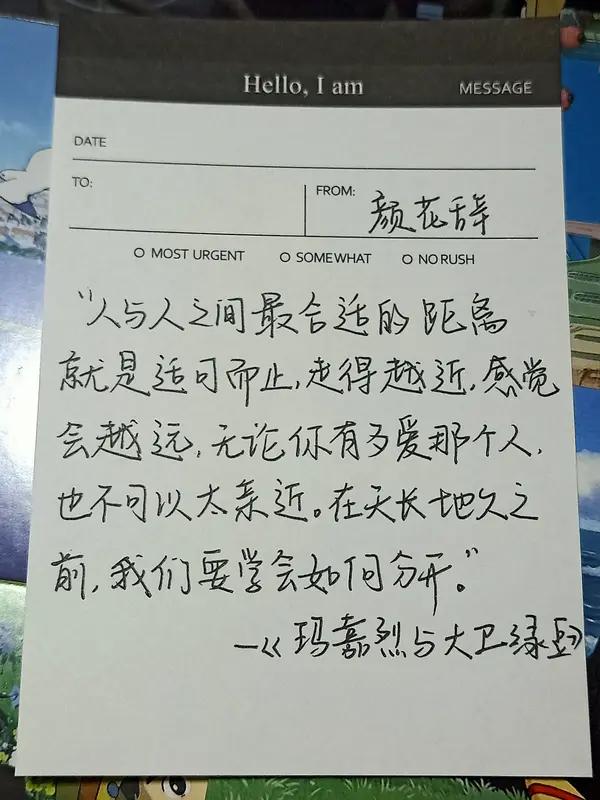 Hello, I am
MESSAGE
DATE
TO:
FROM: 颜花辞
O MOST URGENT O SOMEWHAT O NO RUSH
“人与人之间最合适的距离
就是适可而止,走得越近,感觉
会越远,无论你有多爱那个人,
也不可以太亲近。在天长地久之
前,我们要学会如何分开。”
—《玛嘉烈与大卫绿豆》